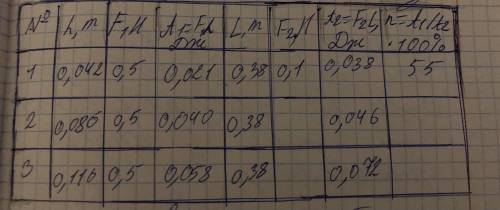 № h, m F₁, H A₁=F₁h, Дж L, m F₂, H A₂=F₂L, Дж η=A₁/A₂ ·100%
1 0,042 0,5 0,021 0,38 0,1 0,038 55
2 0,080 0,5 0,040 0,38 0,046
3 0,116 0,5 0,058 0,38 0,072